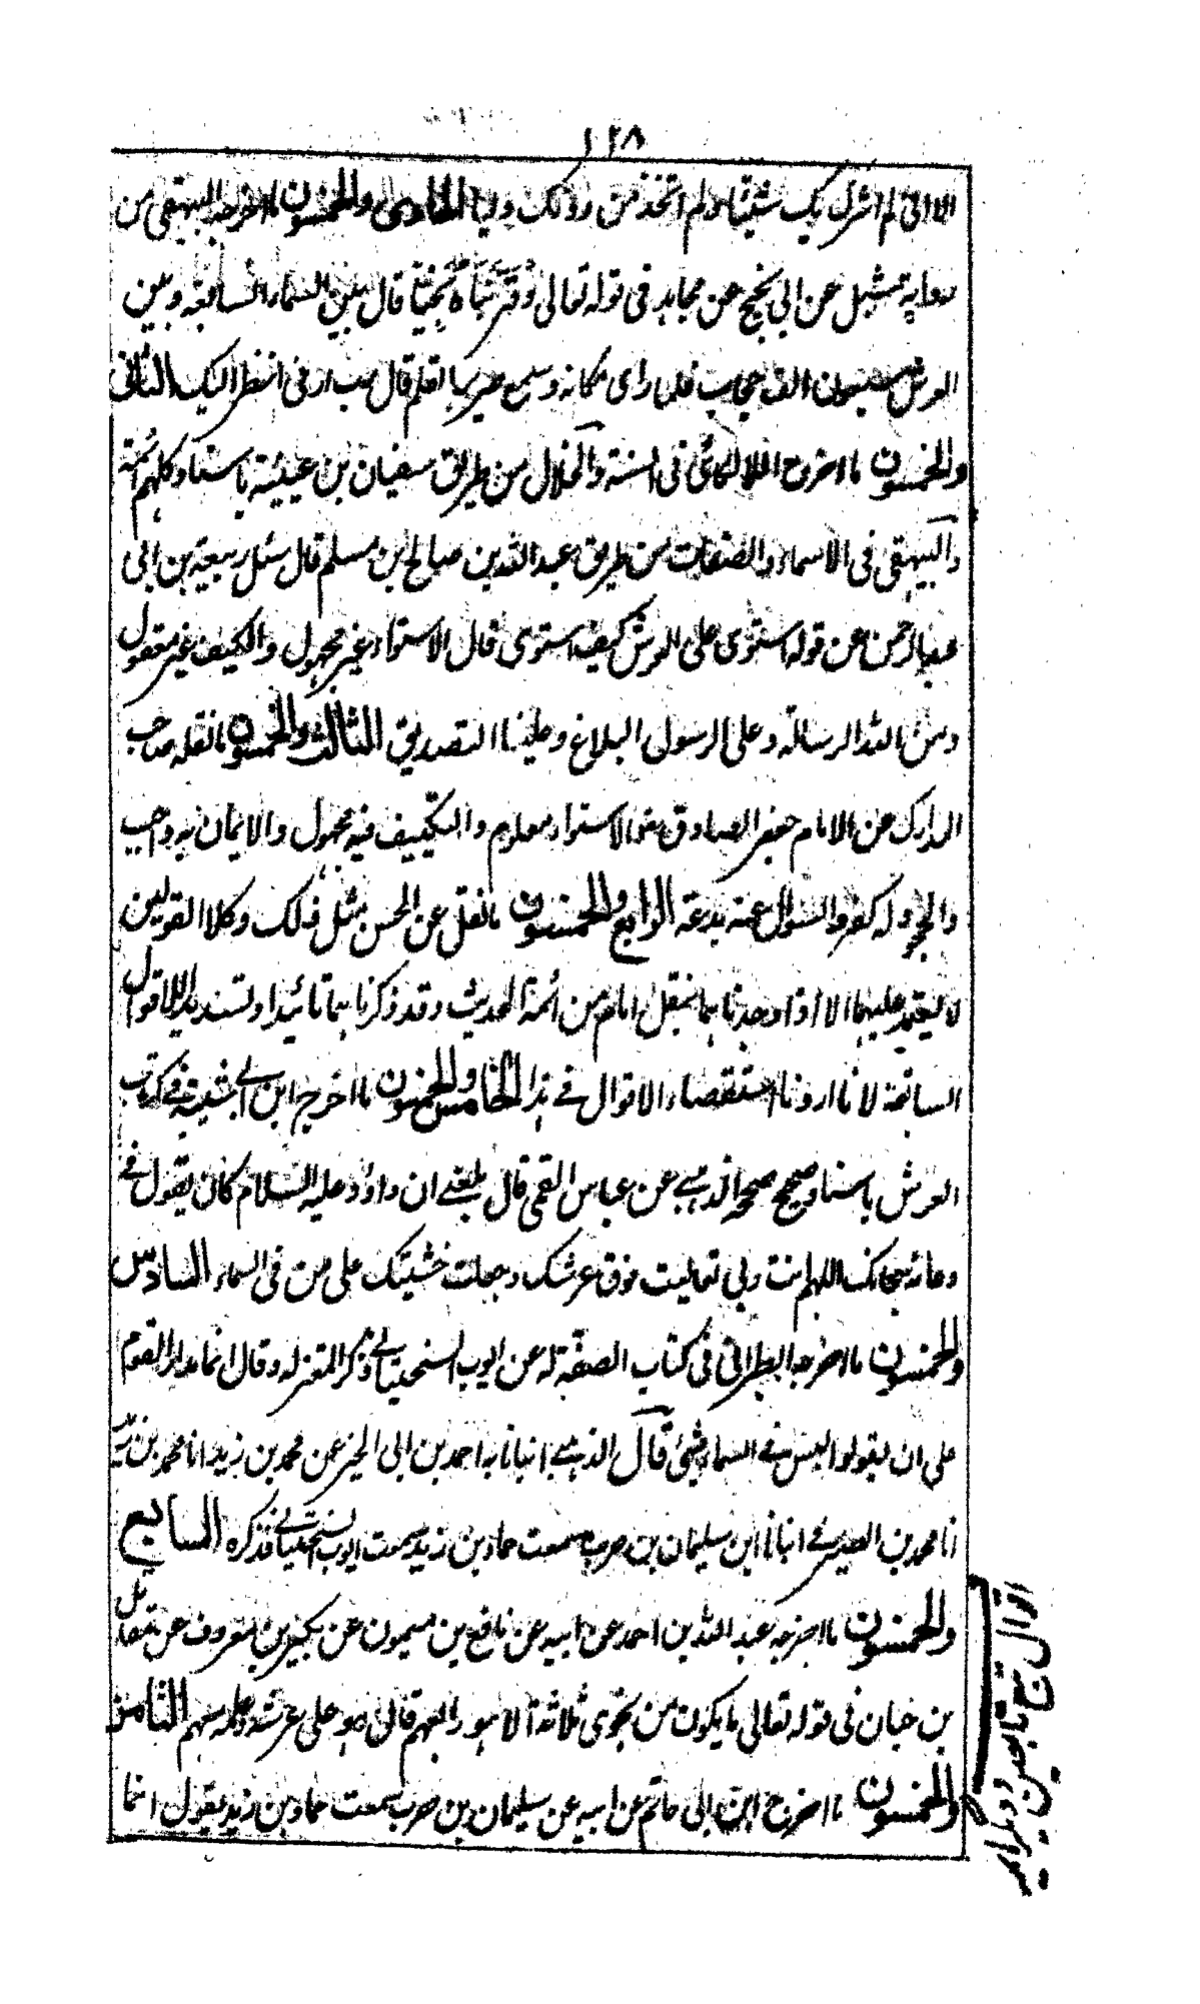 ١٢٨
الا انی لم اشرک بک شیئا ولم اتخذ من دونک ولیا الحادی والخمسون ما اخرجه البیهقی من
روایة شبل عن ابی نجیح عن مجاهد فی قوله تعالی وقربناه نجیا قال بین السماء السابعة وبین
العرش سبعون الف حجاب فلما رای مکانه وسمع صریر القلم قال رب ارنی انظر الیک الثانی
والخمسون ما اخرج اللالکائی فی السنة والخلال من طریق سفیان بن عیینة باسناد کلهم ائمة
والبیهقی فی الاسماء والصفات من طریق عبد الله بن صالح ابن مسلم قال سئل ربیعة بن ابی
عبد الرحمن عن قوله استوی علی العرش کیف استوی قال الاستواء غیر مجهول والکیف غیر معقول
ومن الله الرسالة وعلی الرسول البلاغ وعلینا التصدیق الثالث والخمسون ما نقله صاحب
المدارک عن الامام جعفر الصادق هو الاستواء معلوم والتکییف فیه مجهول والایمان به واجب
والجحود له کفر والسوال عنه بدعة الرابع والخمسون ما نقل عن الحسن مثل ذلک وکلا القولین
لا یعتمد علیهما الا اذا وجدناهما بنقل امام من ائمة الحدیث وقد ذکرناهما تائیدا وتسندید للاقوال
السابقة لانا اردنا استقصاء الاقوال فے هذا الخامس والخمسون ما اخرج ابن ابی شیبة فے کتاب
العرش باسناد صحیح صححه الذهبے عن عباس القمی قال بلغنے ان داود علیه السلام کان یقول فے
دعائه سبحانک اللهم انت ربی تعالیت فوق عرشک وجعلت خشیتک علی من فی السماء السادس
والخمسون ما اخرجه الطبرانی فی کتاب الصفة له عن ایوب السختیانے وذکر المعتزله وقال انما مدار القوم
علی ان یقولوا لیس فے السماء شیئ قال الذهبے انبانا به احمد بن ابی الخیر عن محمد بن زید انا محمد بن
انا محمد بن الصیرفے انبانا ابن سلیمان بن حرب سمعت حماد بن زید سمعت ایوب السختیانے فذکره السابع
والخمسون ما اخرجه عبد الله بن احمد عن ابیه عن نافع بن میمون عن بکیر بن معروف عن مقاتل
بن حیان فی قوله تعالی ما یکون من نجوی ثلاثة الا هو رابعهم قال هو علی عرشه وعلمه معهم الثامن
والخمسون ما اخرج ابن ابی حاتم عن ابیه عن سلیمان بن حرب سمعت حماد بن زید یقول انما
اقوال تبع تابعین